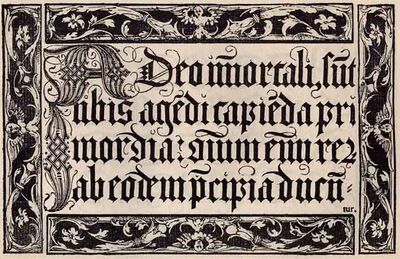 A Deo im̄ortali, sūt
nbis agēdi capiēda pri
mordia: oīum enī reꝝ
ab eodem p̄cipia ducū-
tur.